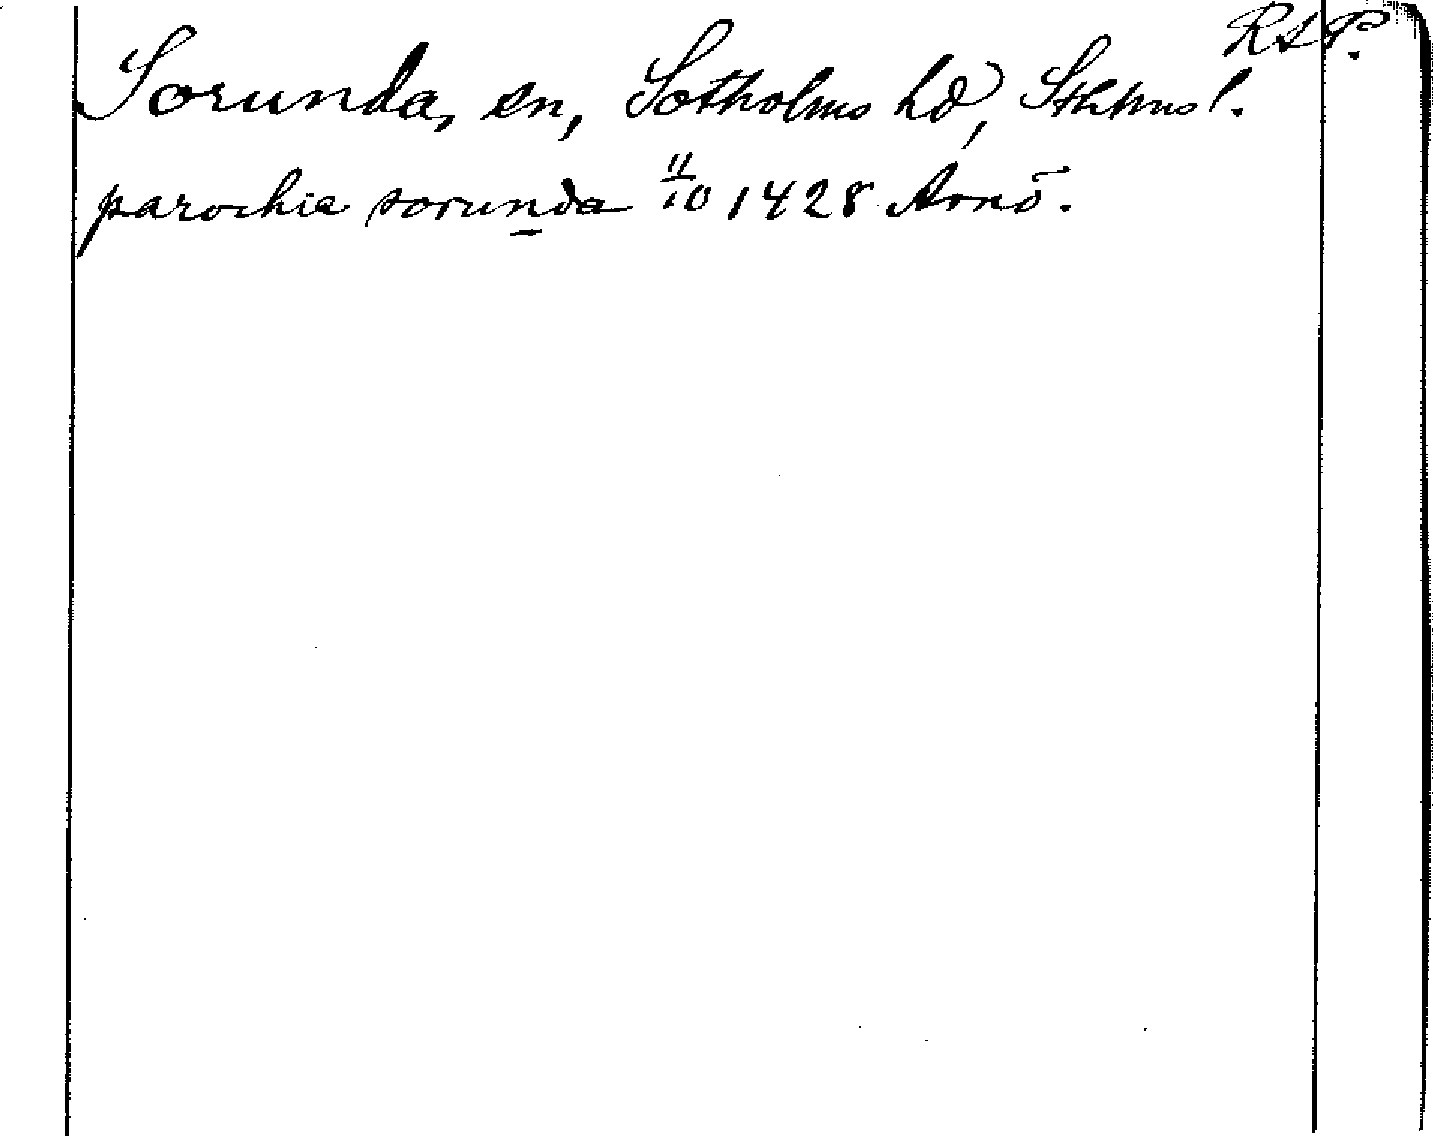 RAP.
Sorunda, sn, Sotholms hd, Sthlms l.
parochie sorunda 11/10 1428 Arnö.